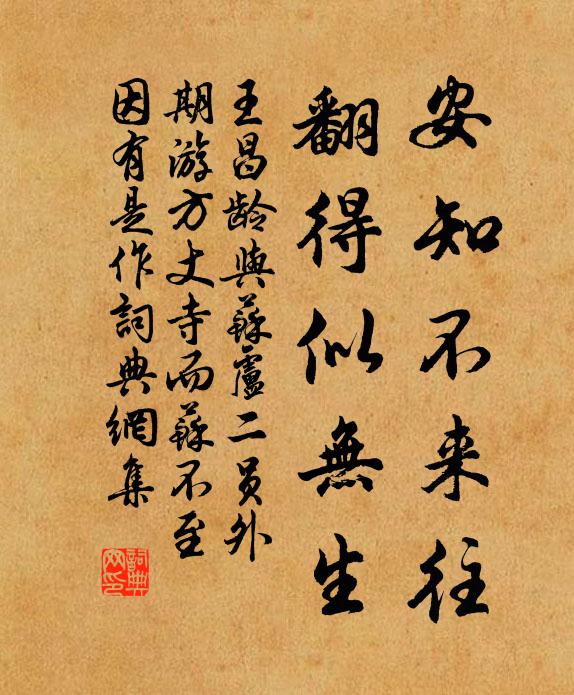 安知不来往
翻得似無生
王昌龄與蘇盧二员外
期游方丈寺而蘇不至
因有是作詞典網集
詞典网印